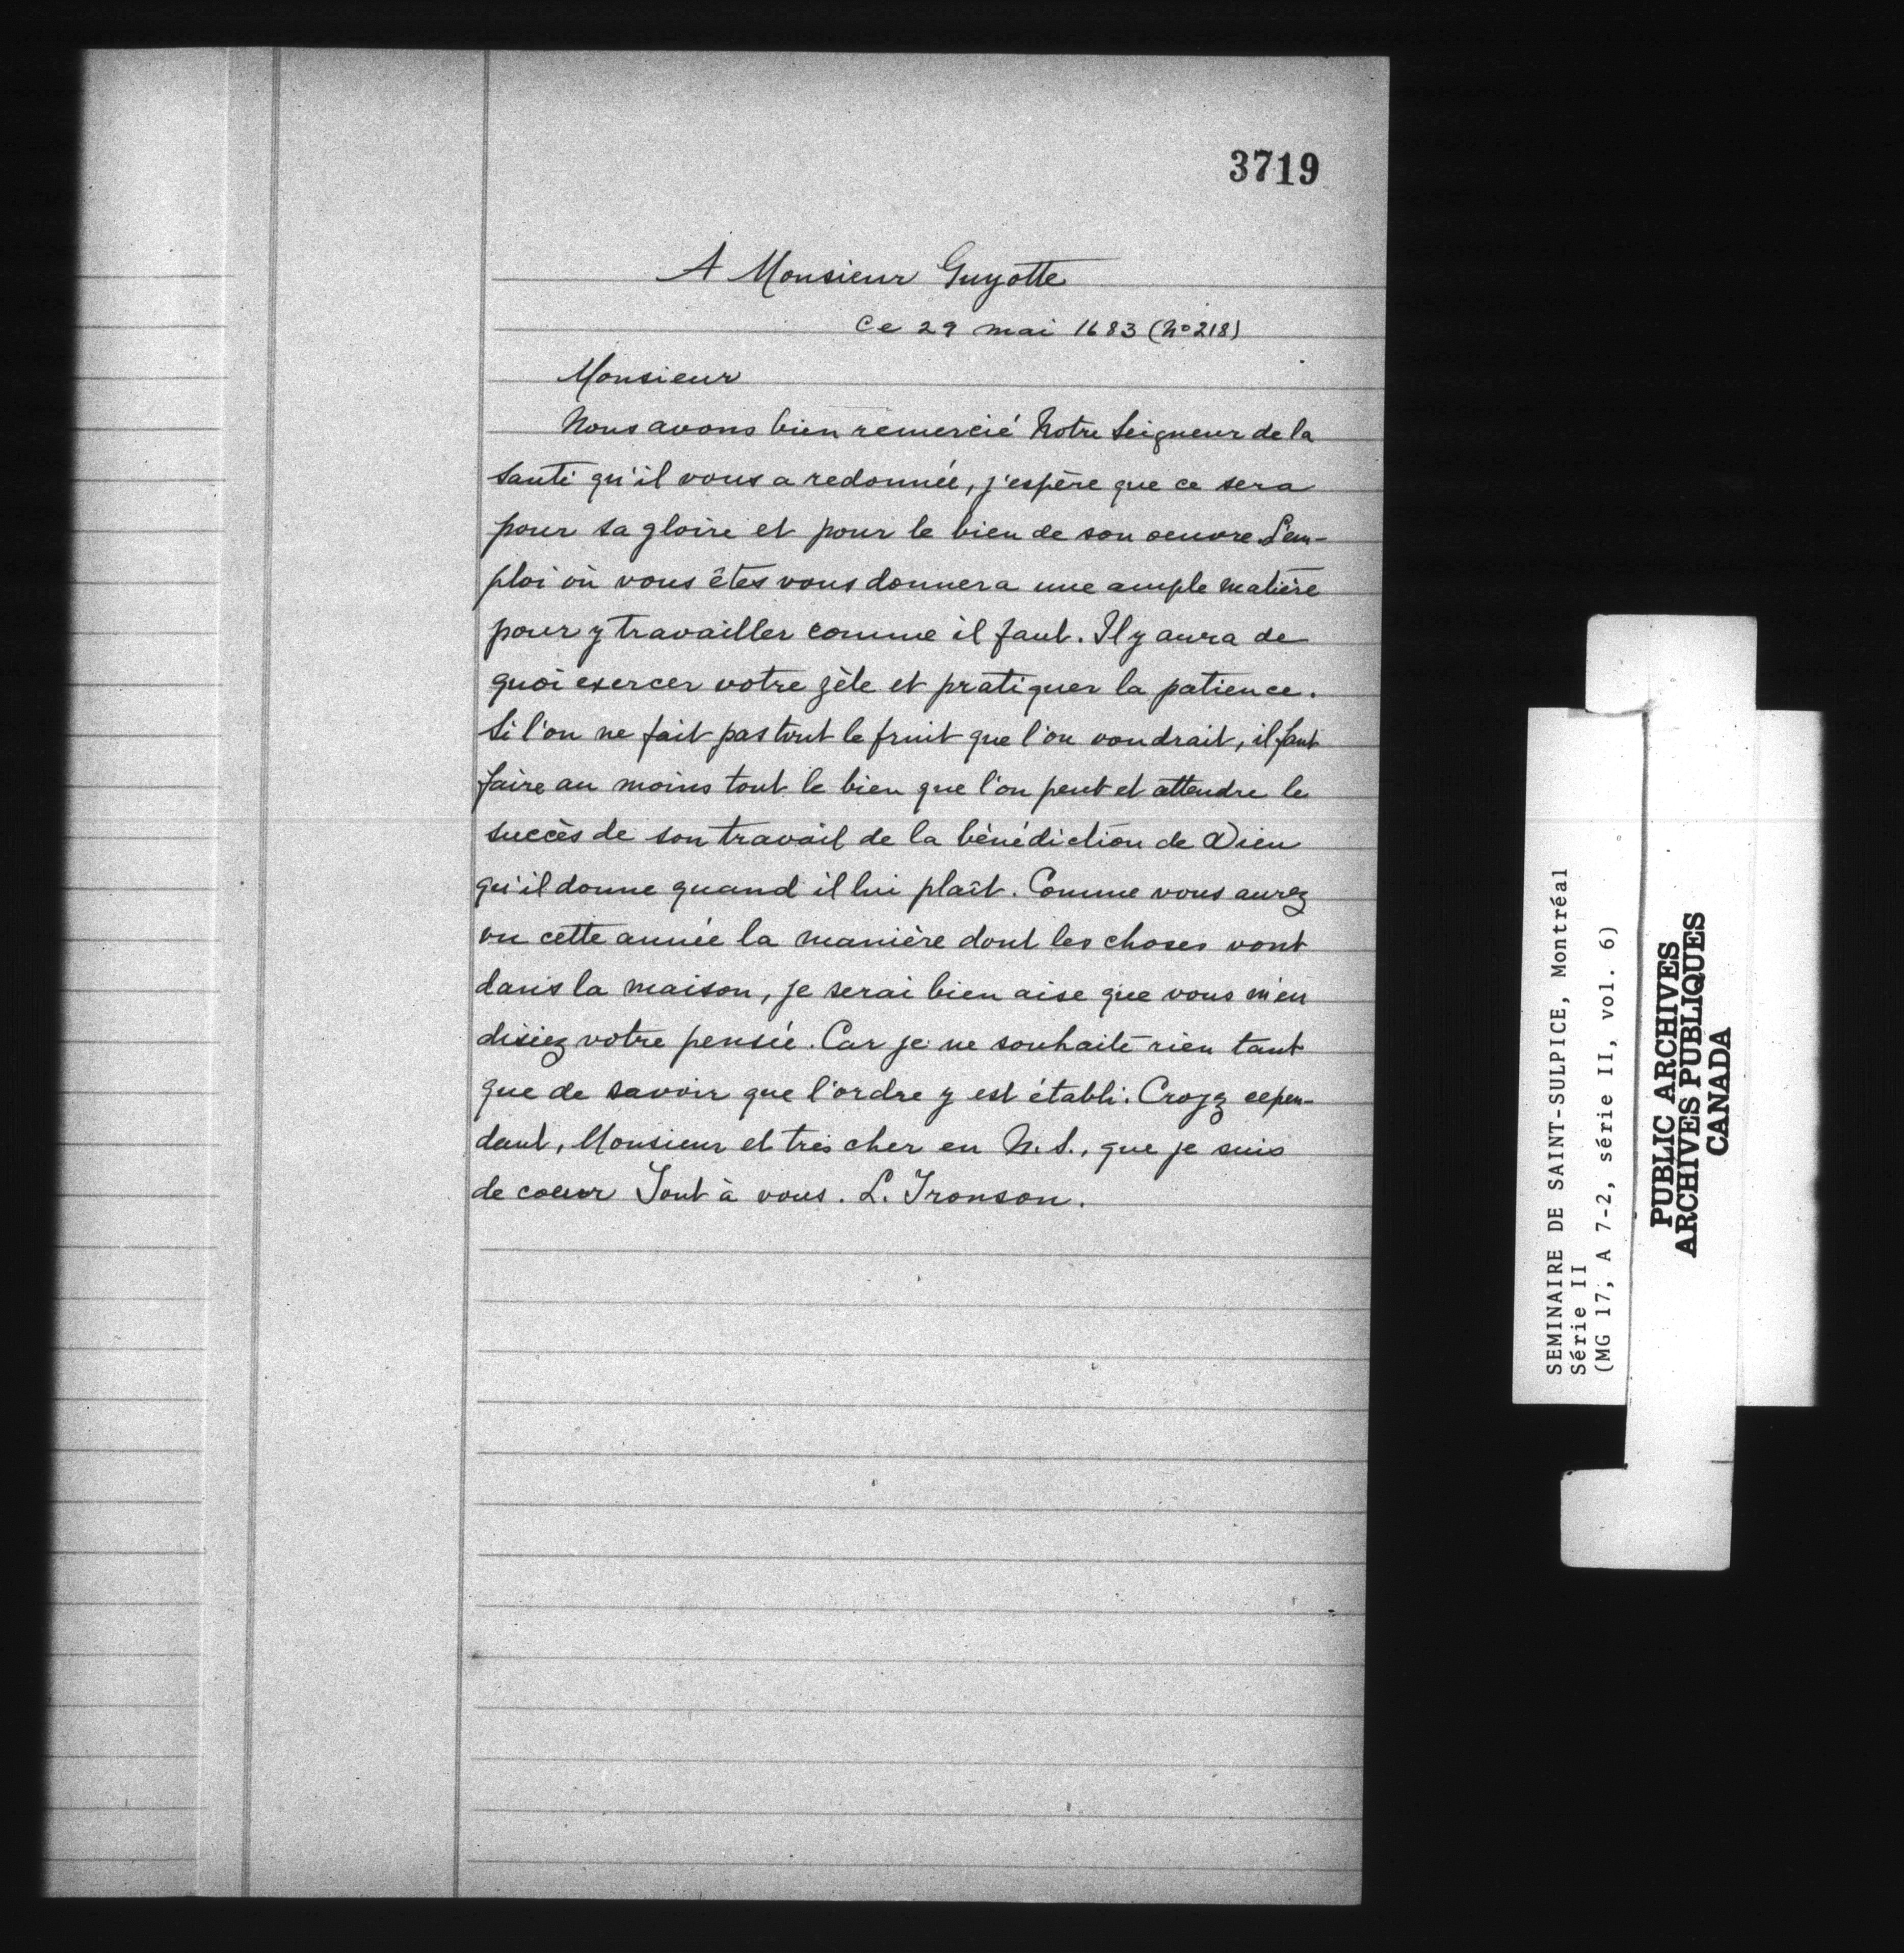 3719
A Monsieur Guyotte
Ce 29 mai 1683 (No 218)
Monsieur
Nous avons bien remercié Notre Seigneur de la
santé qu'il vous a redonnée, j'espère que ce sera
pour sa gloire et pour le bien de son oeuvre. L'em-
ploi où vous êtes vous donnera une ample matière
pour y travailler comme il faut. Il y aura de
quoi exercer votre zèle et pratiquer la patience.
Si l'on ne fait pas tout le fruit que l'on voudrait, il faut
faire au moins tout le bien que l'on peut et attendre le
succès de son travail de la bénédiction de Dieu
qu'il donne quand il lui plaît. Comme vous aurez
vu cette année la manière dont les choses vont
dans la maison, je serai bien aise que vous m'en
disiez votre pensée. Car je ne souhaite rien tant
que de savoir que l'ordre y est établi. Croyez cepen-
dant, Monsieur et très cher en N. S., que je suis
de coeur Tout à vous. L. Tronson.
SEMINAIRE DE SAINT-SULPICE, Montréal
Série II
(MG 17, A 7-2, série II, vol. 6)
PUBLIC ARCHIVES
ARCHIVES PUBLIQUES
CANADA